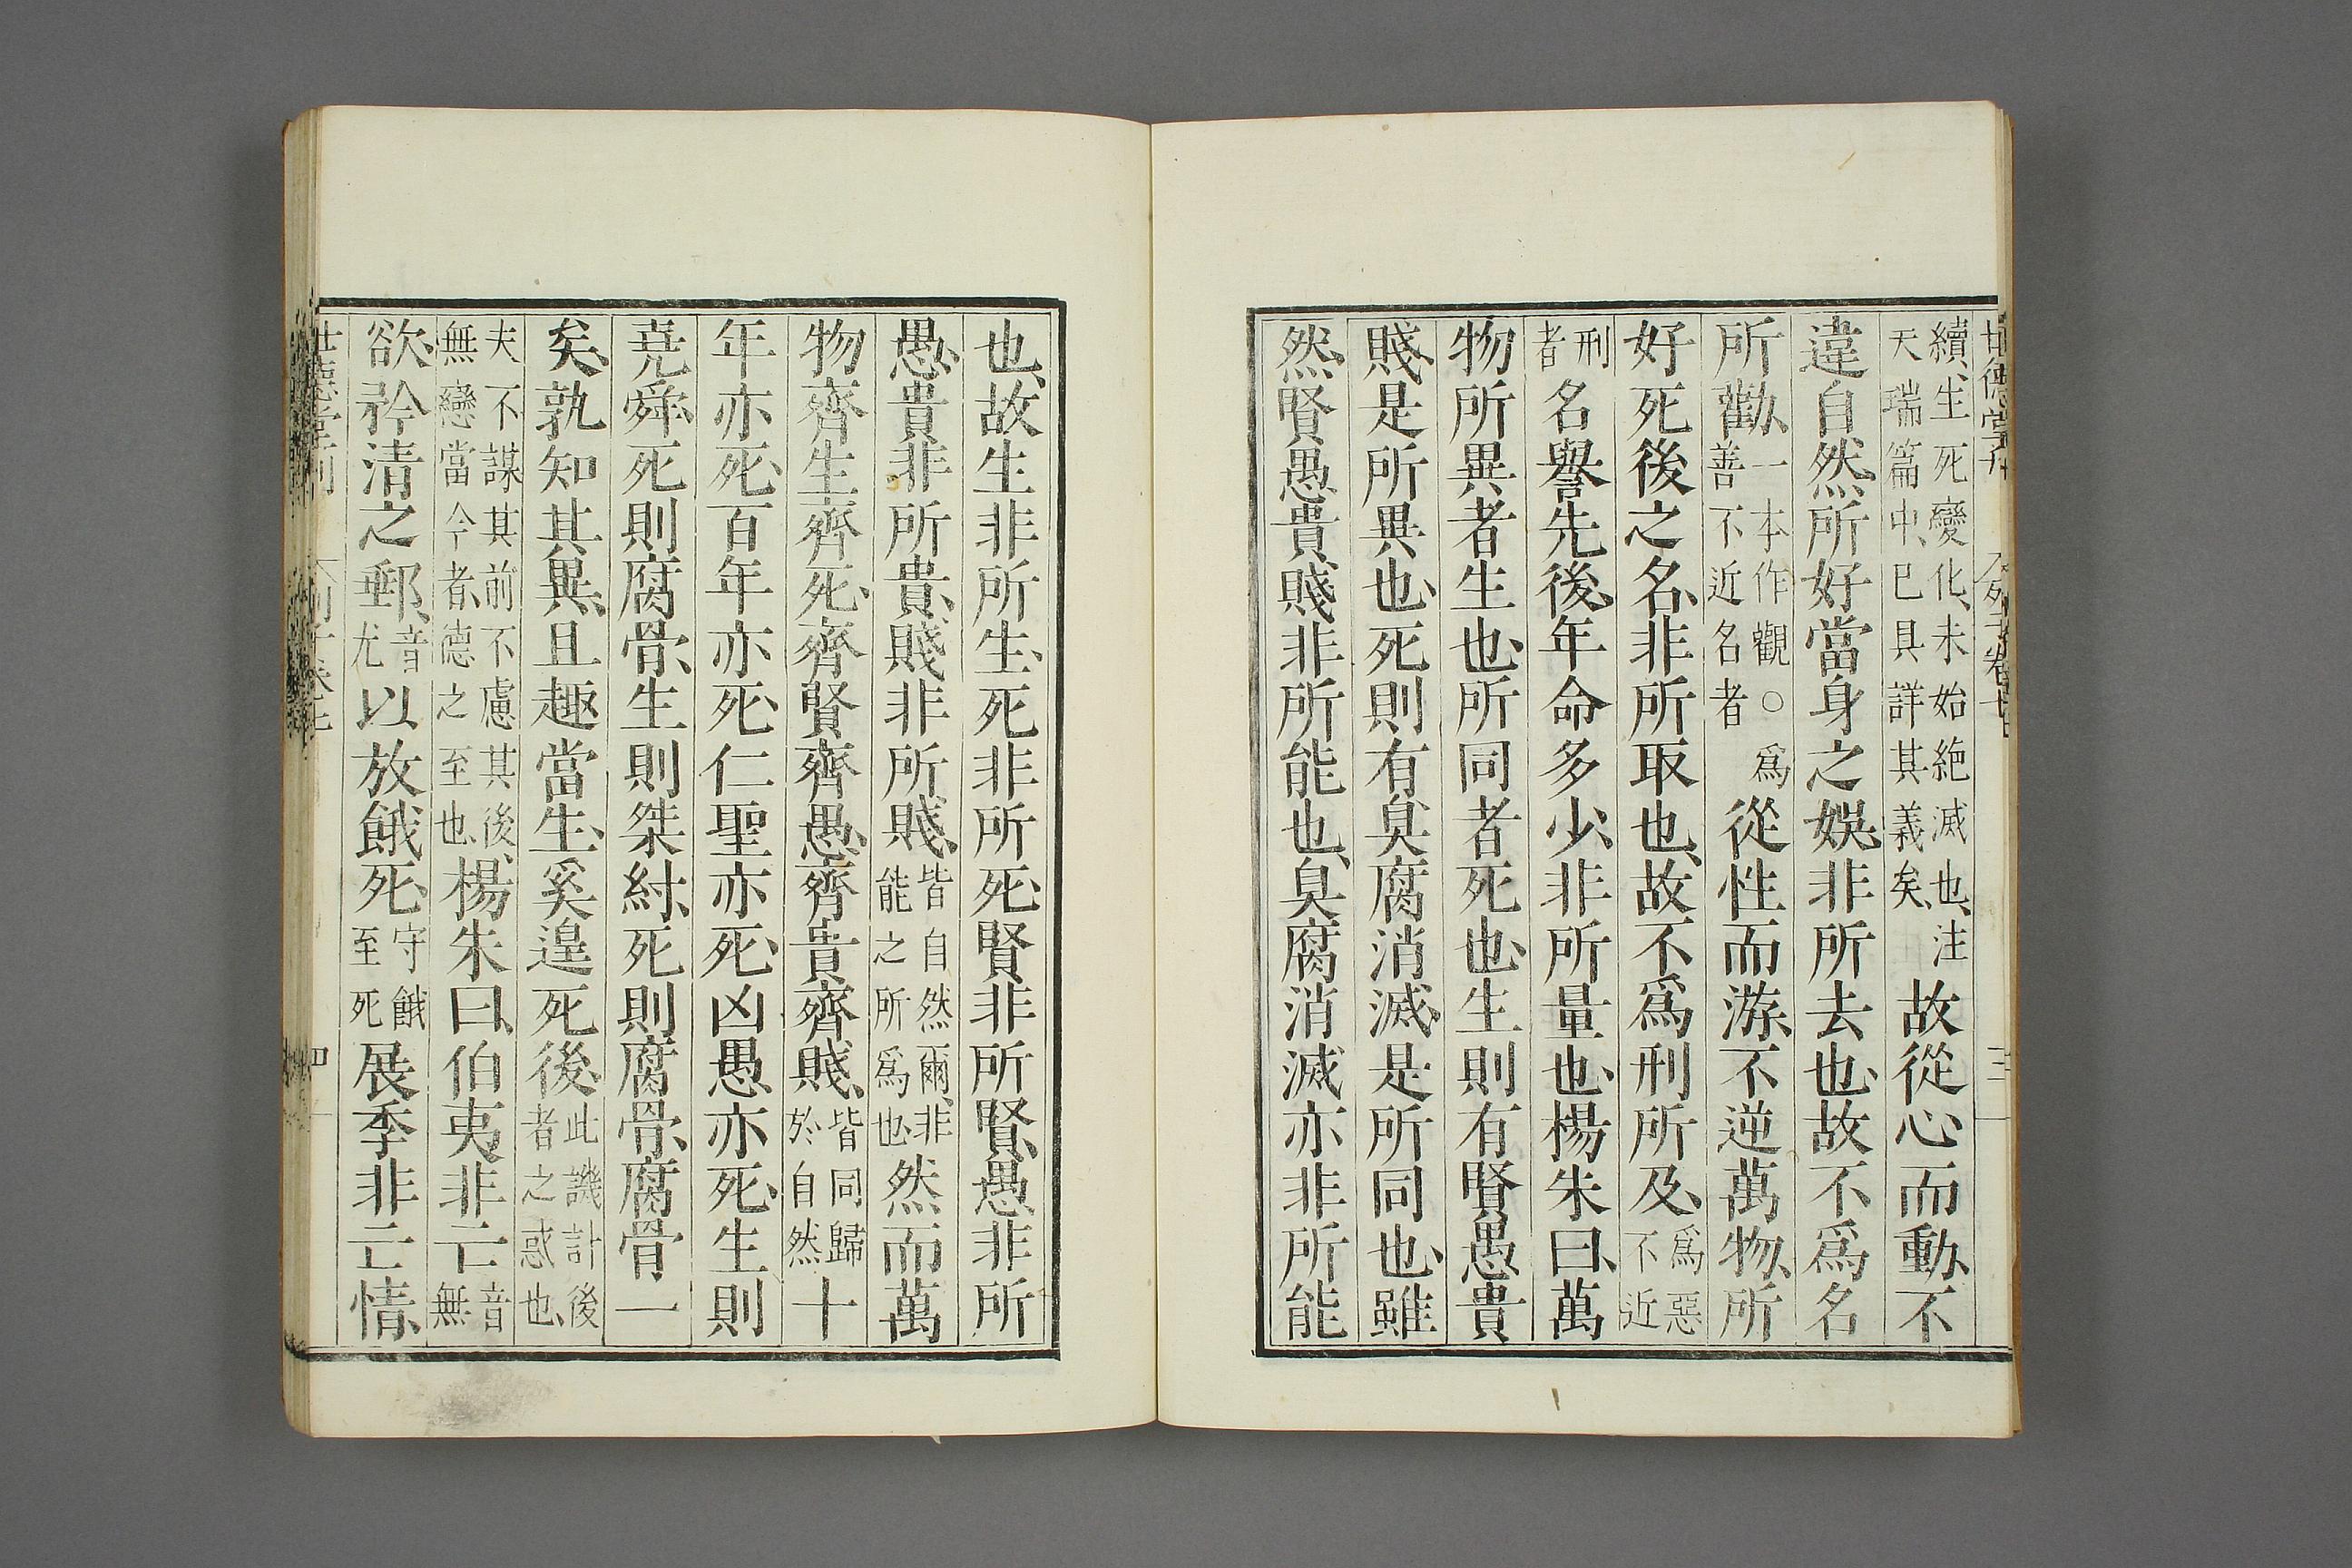 世德堂刊　列子卷七　三
續、生死變化、未始絶滅也、注
天瑞篇中、已具詳其義矣、
故從心而動、不
違自然、所好當身之娛、非所去也、故不爲名
所勸、
一本作觀○爲
善不近名者
從性而游、不逆萬物、所
好死後之名、非所取也、故不爲刑所及、
爲惡
不近
刑
者
名譽先後、年命多少、非所量也、楊朱曰、萬
物所異者生也、所同者死也、生則有賢愚貴
賤、是所異也、死則有臭腐消滅、是所同也、雖
然、賢愚貴賤非所能也、臭腐消滅亦非所能
也、故生非所生、死非所死、賢非所賢、愚非所
愚、貴非所貴、賤非所賤、
皆自然爾、非
能之所爲也、
然而萬
物齊生齊死、齊賢齊愚、齊貴齊賤、
皆同歸
於自然
十
年亦死、百年亦死、仁聖亦死、凶愚亦死、生則
堯舜、死則腐骨、生則桀紂、死則腐骨、腐骨一
矣、孰知其異、且趣當生、奚遑死後、
此譏計後
者之惑也、
夫不謀其前不慮其後、
無戀當今者、德之至也、
楊朱曰、伯夷非亡
音
無
欲、矜清之郵、
音
尤
以放餓死、
守餓
至死
展季非亡情、
世德堂刊　列子卷七　四